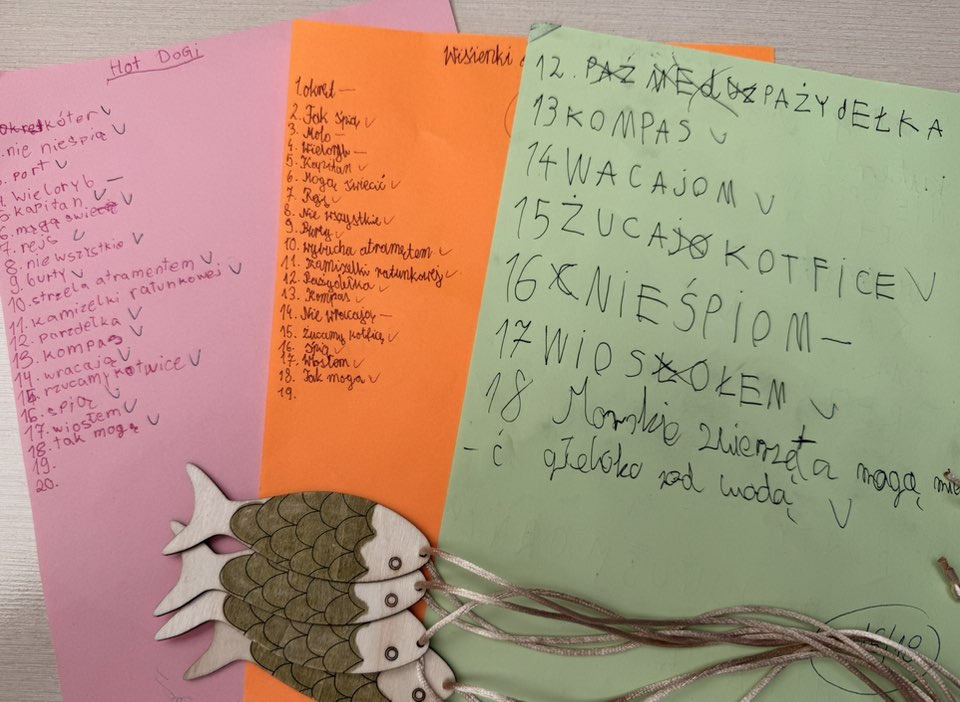 Hot DoGi
kóter
nie nieśpią
port
wieloryb –
kapitan
6. mogą świecić
7. rejs
8. nie wszystkie
9. burty
10. strzela atramentem
11. kamizelki ratunkowej
12. parzdełka
13. kompas
14. wracają
15. rzucamy kotwice
16. śpią
17. wiosłem
18. tak mogą
19.
20.
Wisienki
1. okręt –
2. Tak śpią
3. Molo –
4. Wieloryb –
5. Kapitan
6. Mogą świecić
7. Rejs
8. Nie wszystkie
9. Burty
10. wybucha atramętem
11. Kamizelki ratunkowej
12. Pażydełka
13. Kompas
14. Nie wracają –
15. Żucamy kotficę
16. Śpią
17. Wiosłem
18. Tak moga
19.
12. PAŻYDEŁKA
13 KOMPAS
14 WACAJOM
15 ŻUCAJO KOTFICE
16 NIEŚPIOM –
17 WIOSŁOŁEM
18 Morskie zwierzęta mogą
- ć głeboko pod wodą